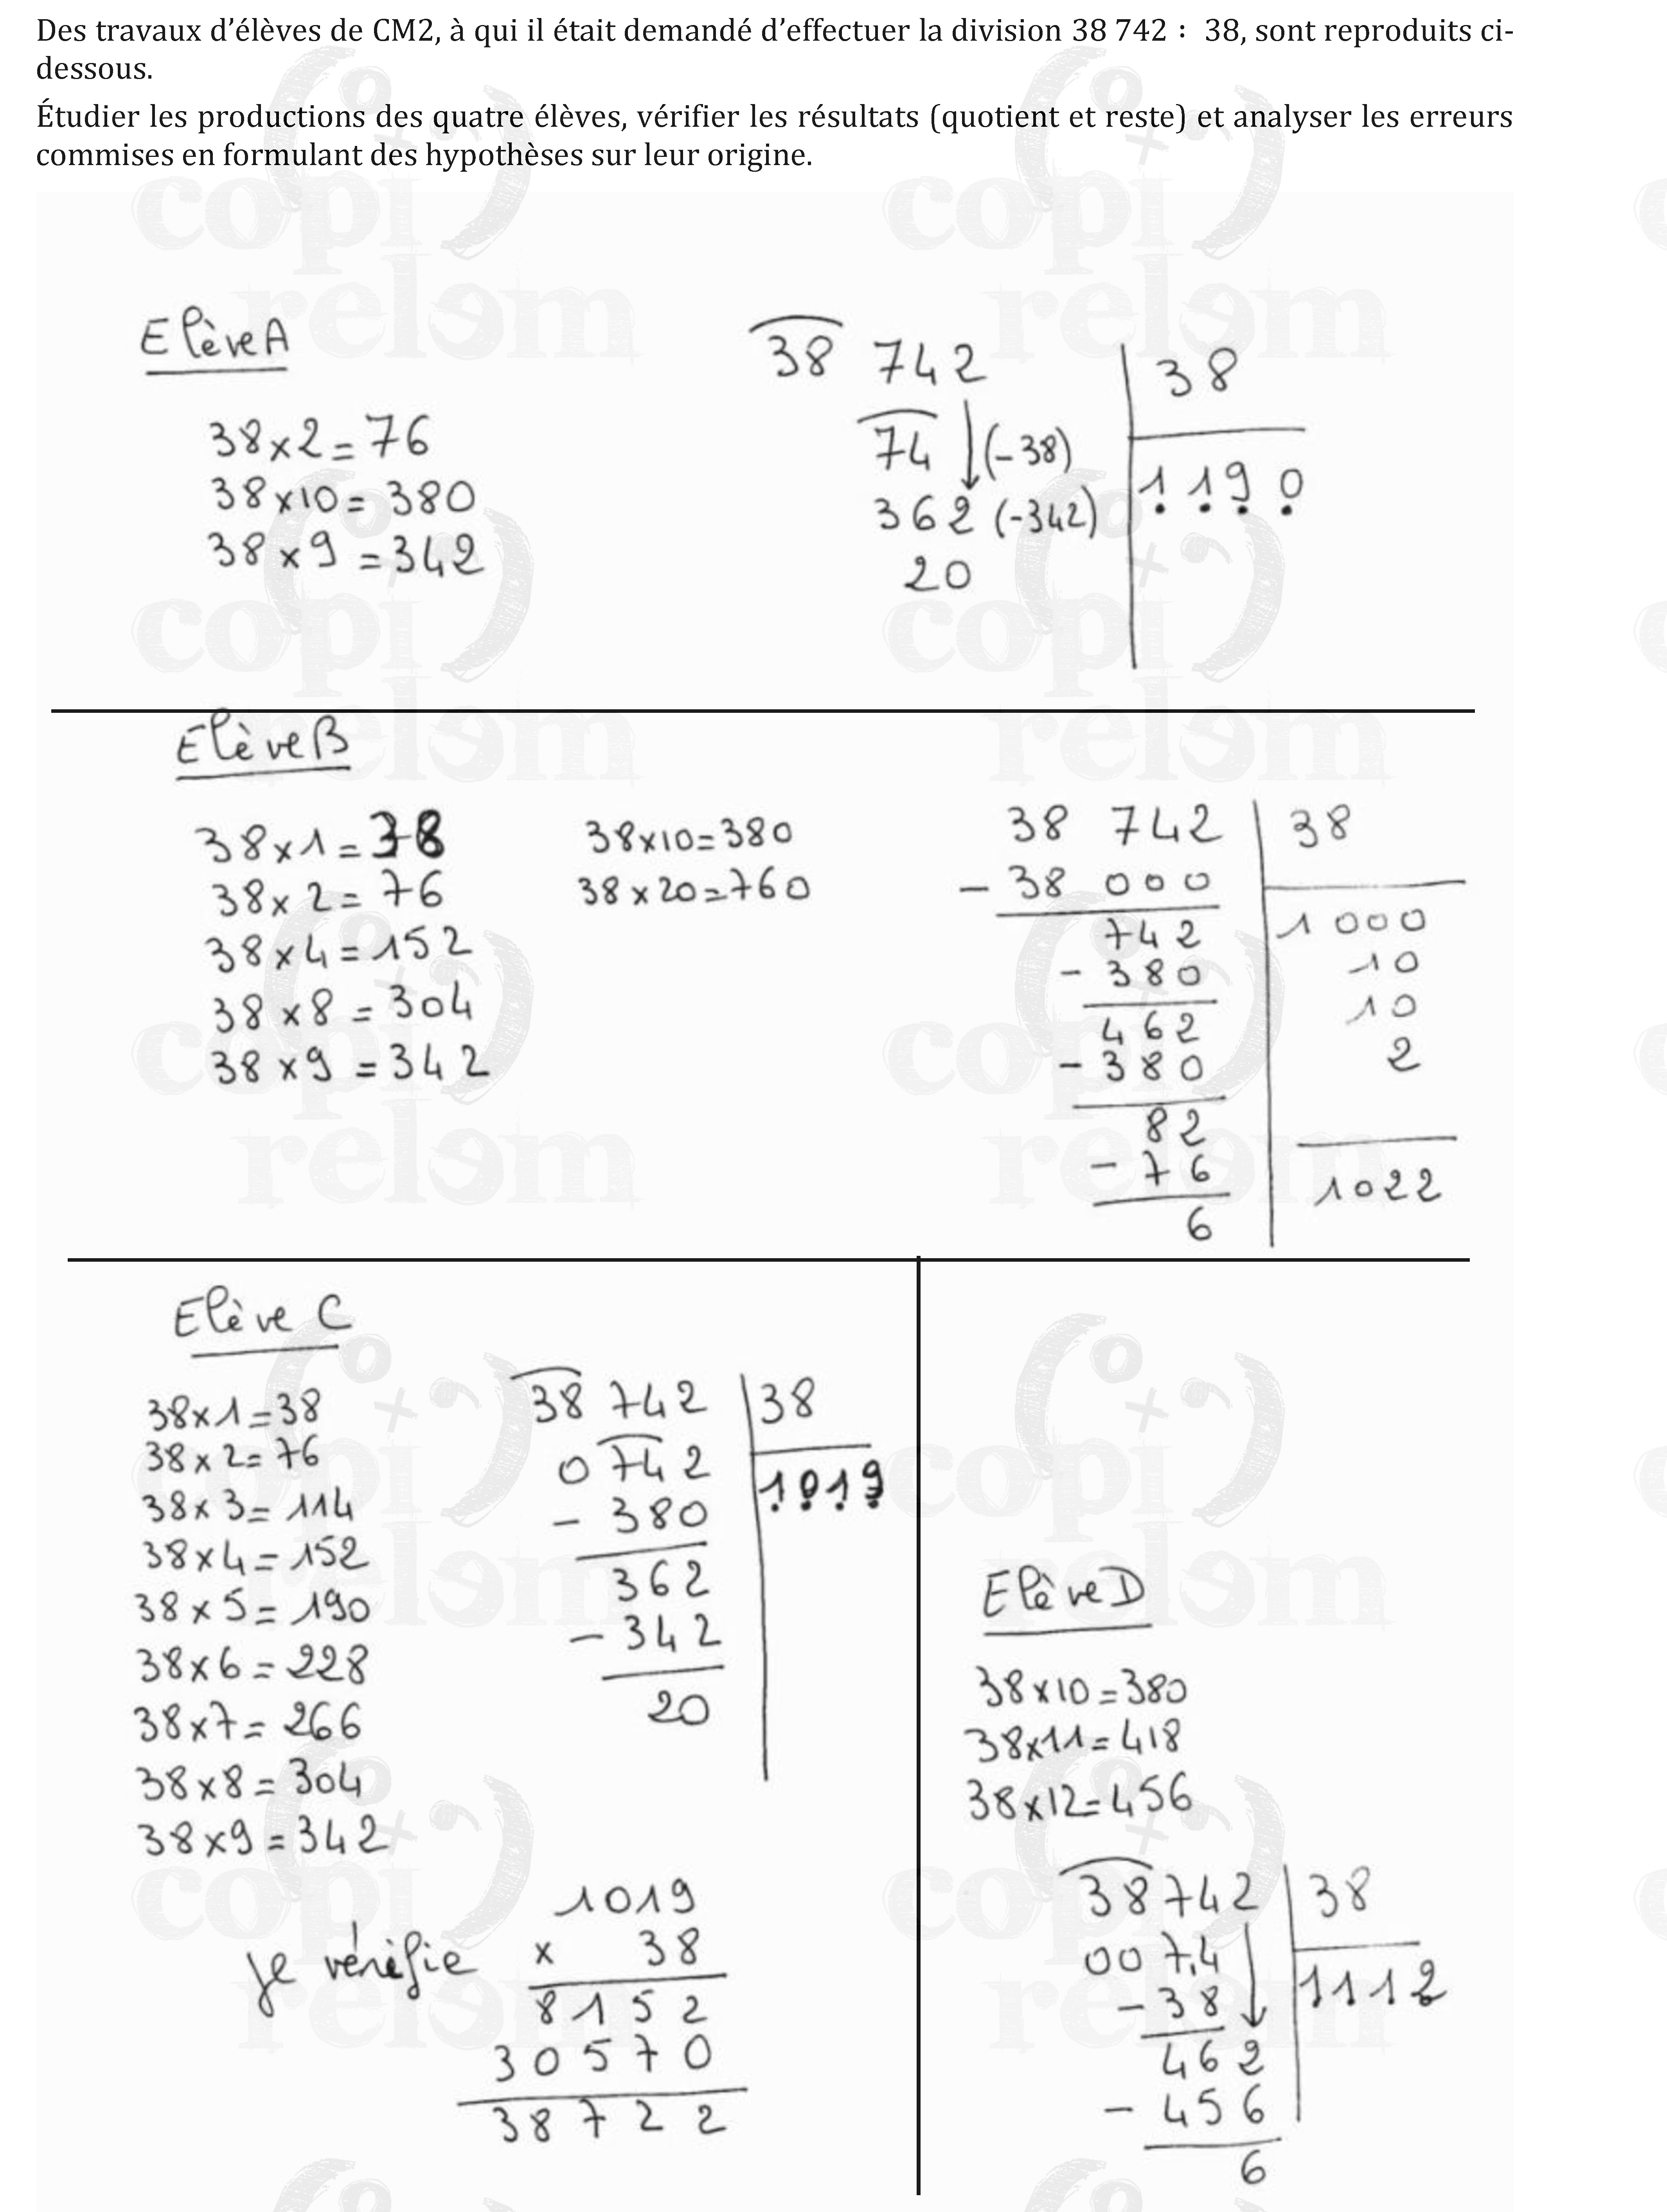 Des travaux d'élèves de CM2, à qui il était demandé d'effectuer la division 38 742 : 38, sont reproduits ci-
dessous.
Étudier les productions des quatre élèves, vérifier les résultats (quotient et reste) et analyser les erreurs
commises en formulant des hypothèses sur leur origine.
Elève A
38 x 2 = 76
38 x 10 = 380
38 x 9 = 342
38 742 38
74 (-38)
1 1 9 0
362 (-342)
20
Elève B
38 x 1 = 38
38 x 2 = 76
38 x 4 = 152
38 x 8 = 304
38 x 9 = 342
38 x 10 = 380
38 x 20 = 760
38 742 38
- 38 000
742 1 000
- 380 10
462 10
- 380 2
82
- 76 1022
6
Elève C
38 x 1 = 38
38 x 2 = 76
38 x 3 = 114
38 x 4 = 152
38 x 5 = 190
38 x 6 = 228
38 x 7 = 266
38 x 8 = 304
38 x 9 = 342
38 742 38
0 742 1019
- 380
362
- 342
20
Je vérifie
1019
x 38
8152
30570
38722
Elève D
38 x 10 = 380
38 x 11 = 418
38 x 12 = 456
38742 38
0074 1112
- 38
462
- 456
6
copirelem